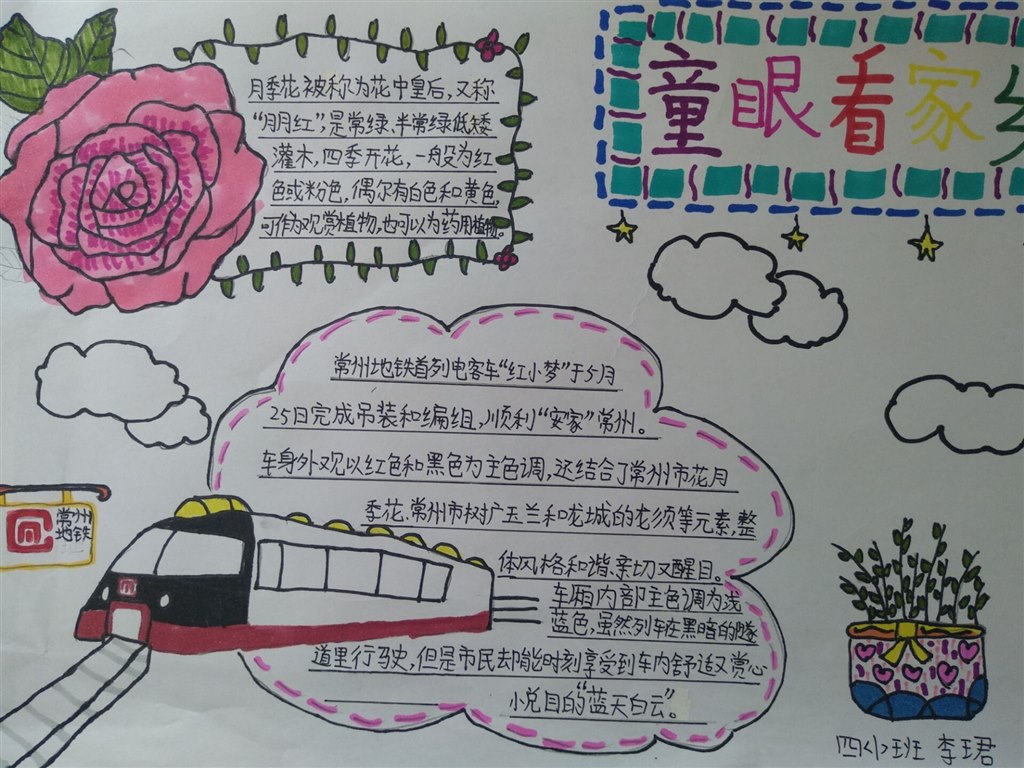 童眼看家乡
月季花被称为花中皇后，又称
“月月红”，是常绿、半常绿低矮
灌木，四季开花，一般为红
色或粉色，偶尔有白色和黄色，
可作为观赏植物，也可以为药用植物。
常州地铁首列电客车“红小梦”于5月
25日完成吊装和编组，顺利“安家”常州。
车身外观以红色和黑色为主色调，还结合了常州市花月
季花、常州市树广玉兰和龙城的龙须等元素，整
体风格和谐、亲切又醒目。
车厢内部主色调为浅
蓝色，虽然列车在黑暗的隧
道里行驶，但是市民却能时刻享受到车内舒适又赏心
悦目的“蓝天白云”。
常州
地铁
四（小）班 李珺